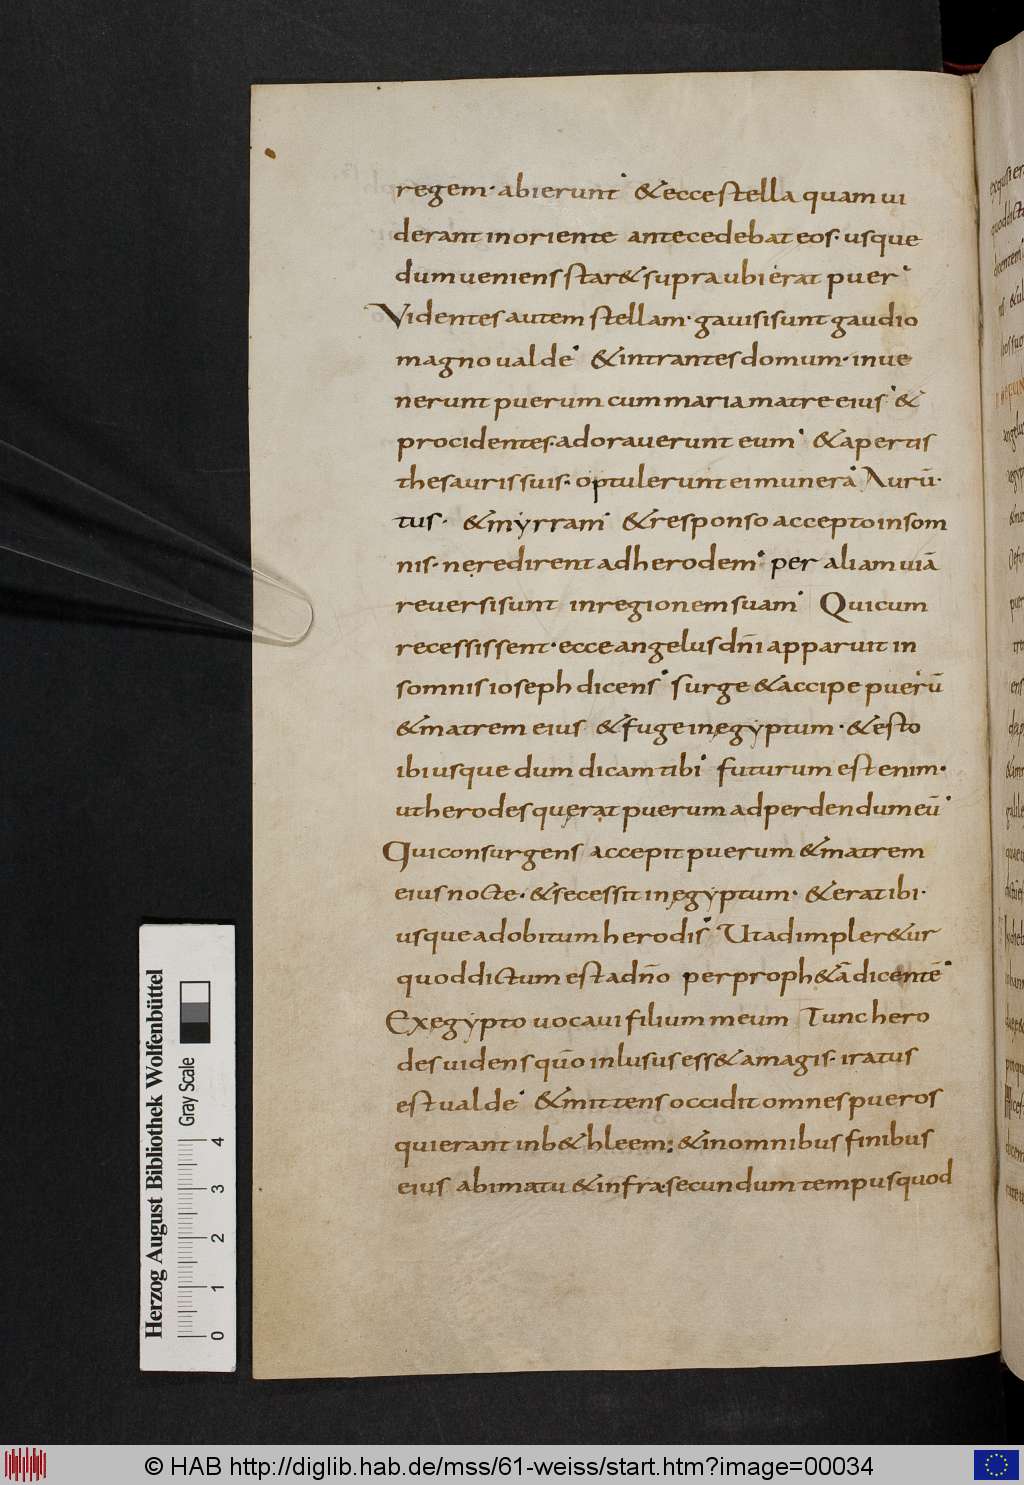 regem· abierunt· & ecce stella quam ui
derant in oriente antecedebat eos· usque
dum ueniens star& supra ubi erat puer·
Videntes autem stellam· gauisi sunt gaudio
magno ualde· & intrantes domum· inue
nerunt puerum cum maria matre eius· &
procidentes· adorauerunt eum· & apertis
thesauris suis· optulerunt ei munera· Aurū·
tus· & myrram· & responso accepto in som
nis· ne redirent ad herodem· per aliam uiā
reuersi sunt in regionem suam· Qui cum
recessissent· ecce angelus dn̄i apparuit in
somnis ioseph dicens· surge & accipe puerū
& matrem eius & fuge in ęgyptum· & esto
ibi usque dum dicam tibi· futurum est enim·
ut herodes quęrat puerum ad perdendum eū·
Qui consurgens accepit puerum & matrem
eius nocte· & secessit in ęgyptum· & erat ibi·
usque ad obitum herodis· Ut adimpler&ur
quod dictum est a dn̄o per proph&ā dicentē·
Ex ęgypto uocaui filium meum Tunc hero
des uidens qūo inlusus ess& a magis· iratus
est ualde· & mittens occidit omnes pueros
qui erant in b&hleem: & in omnibus finibus
eius a bimatu & infra· secundum tempus quod
Herzog August Bibliothek Wolfenbüttel
Gray Scale
0 1 2 3 4
© HAB http://diglib.hab.de/mss/61-weiss/start.htm?image=00034